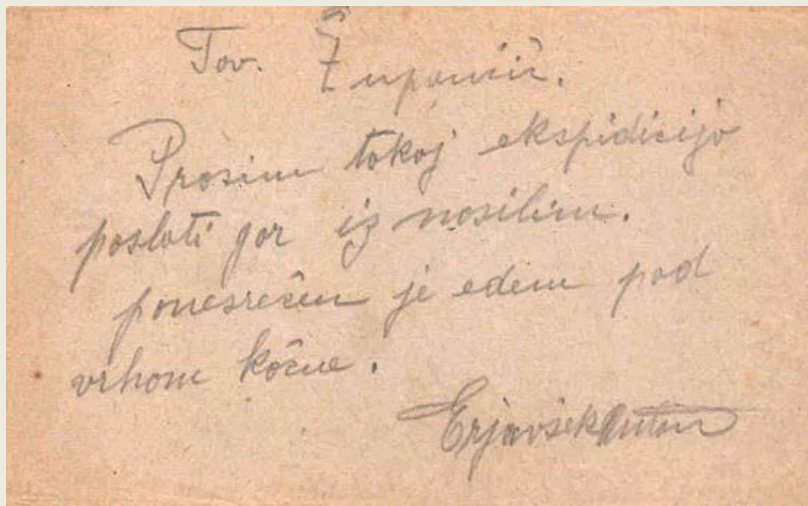 Tov. Zupančič.
Prosim tokoj ekspidicijo
poslati gor iz nosilim.
ponesrečen je eden pod
vrhom kočne.
Erjavšek Anton